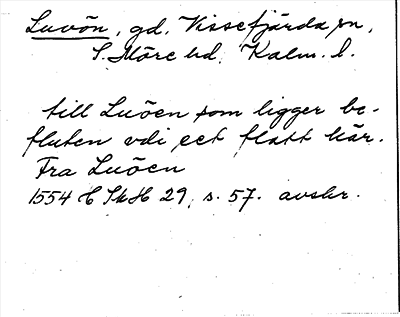 Luvön, gd, Vissefjärda sn,
S. Möre hd, Kalm. l.
till Luöen som ligger be-
fluten vdi eet flatt kär.
Fra Luöen
1554 H SkH 29, s. 57. avskr.